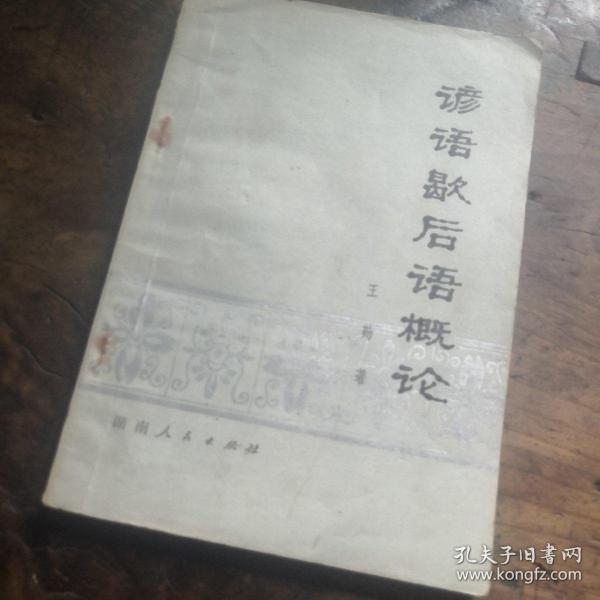 谚语歇后语概论
王勤著
湖南人民出版社
孔夫子旧书网
www.kongfz.com